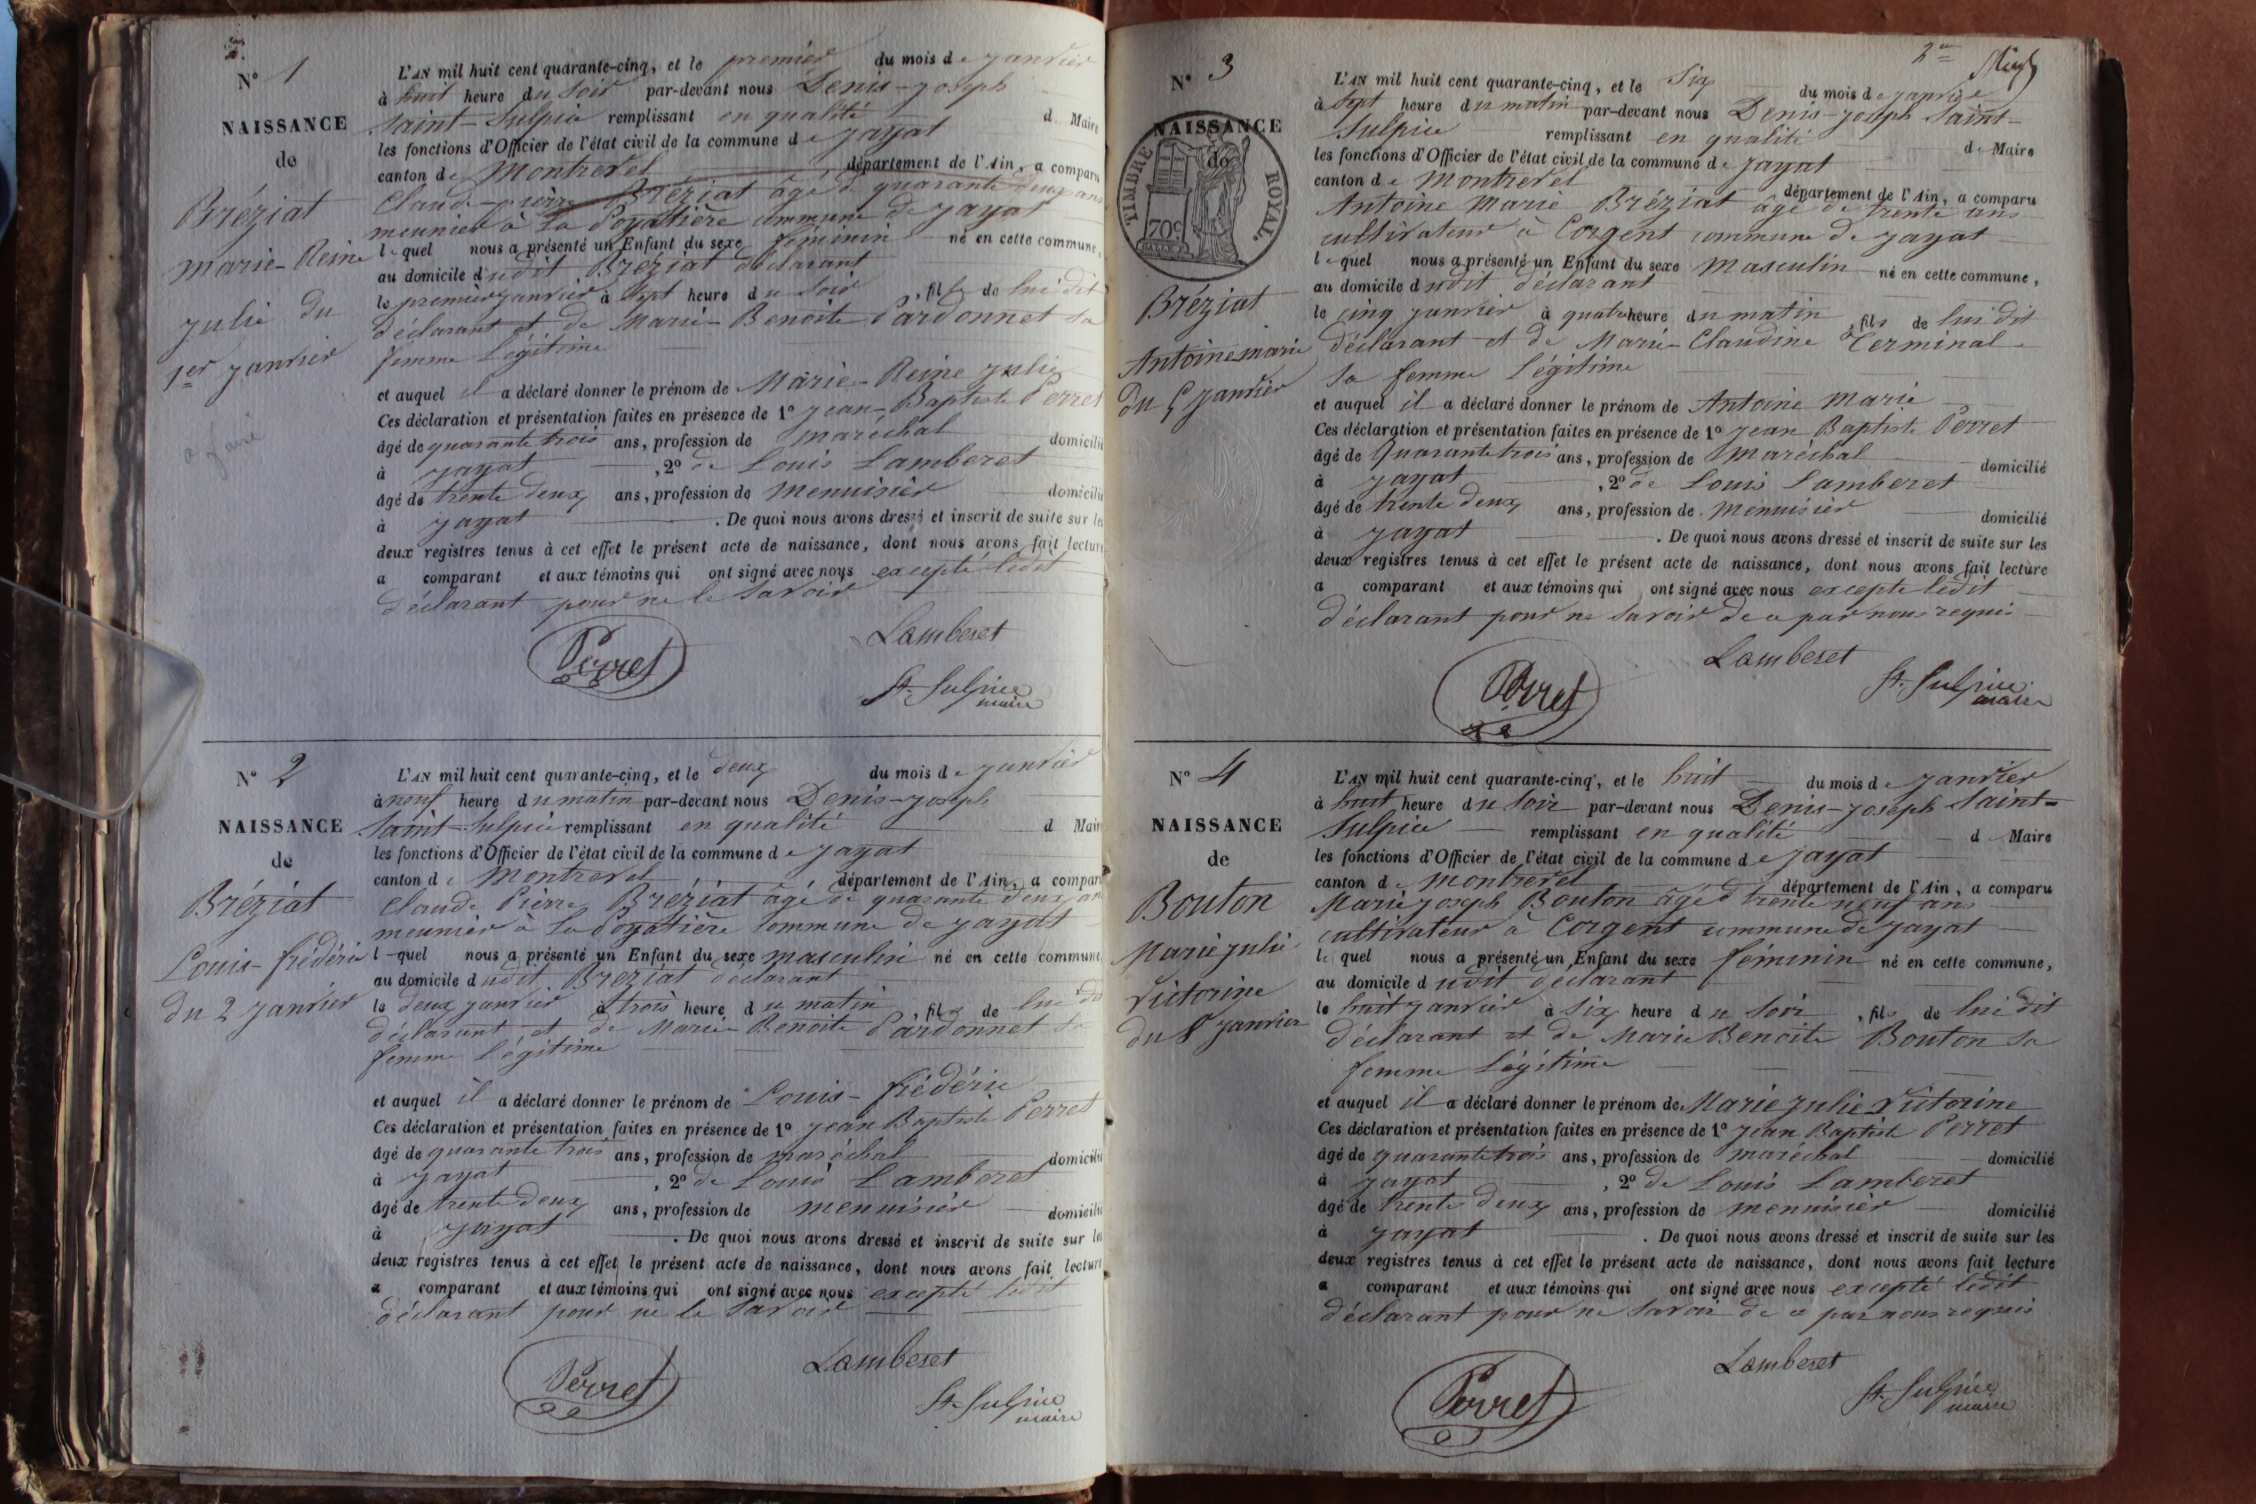 N° 1
NAISSANCE
de
Bréziat
Marie-Reine
Julie du
1er janvier
a faire
L'AN mil huit cent quarante-cinq, et le premier du mois de janvier
à huit heure du soir par-devant nous Denis-Joseph
Saint-Sulpice remplissant en qualité d Maire
les fonctions d'Officier de l'état civil de la commune de Jayat
canton de Montrevel département de l'Ain, a comparu
Claude-pierre Bréziat âgé de quarante deux ans
meunier à la Poyatière commune de Jayat
lequel nous a présenté un Enfant du sexe féminin né en cette commune,
au domicile dudit Bréziat déclarant
le premier janvier à sept heure du soir, fille de lui dit
déclarant et de Marie-Benoite Pardonnet sa
femme légitime
et auquel il a déclaré donner le prénom de Marie-Reine Julie
Ces déclaration et présentation faites en présence de 1° Jean-Baptiste Perret
âgé de quarante trois ans, profession de maréchal domicilié
à Jayat, 2° de Louis Lamberet
âgé de trente deux ans, profession de menuisier domicilié
à Jayat. De quoi nous avons dressé et inscrit de suite sur les
deux registres tenus à cet effet le présent acte de naissance, dont nous avons fait lecture
a comparant et aux témoins qui ont signé avec nous excepté ledit
déclarant pour ne le savoir
Lamberet
Perret
St. Sulpice
maire
N° 2
NAISSANCE
de
Bréziat
Louis-frédéric
du 2 janvier
L'AN mil huit cent quarante-cinq, et le deux du mois de janvier
à neuf heure du matin par-devant nous Denis-Joseph
Saint-Sulpice remplissant en qualité d Maire
les fonctions d'Officier de l'état civil de la commune de Jayat
canton de Montrevel département de l'Ain, a comparu
Claude Pierre Bréziat âgé de quarante deux ans
meunier à la Poyatière commune de Jayat
lequel nous a présenté un Enfant du sexe masculin né en cette commune
au domicile dudit Breziat déclarant
le deux janvier à trois heure du matin, fils de lui dit
déclarant et de Marie-Benoite Pardonnet sa
femme légitime
et auquel il a déclaré donner le prénom de Louis-frédéric
Ces déclaration et présentation faites en présence de 1° Jean Baptiste Perret
âgé de quarante trois ans, profession de maréchal domicilié
à Jayat, 2° de Louis Lamberet
âgé de trente deux ans, profession de menuisier domicilié
à Jayat. De quoi nous avons dressé et inscrit de suite sur les
deux registres tenus à cet effet le présent acte de naissance, dont nous avons fait lecture
a comparant et aux témoins qui ont signé avec nous excepté ledit
déclarant pour ne le savoir
Lamberet
Perret
St. Sulpice
maire
2me
N° 3
NAISSANCE
de
TIMBRE ROYAL.
70c
Bréziat
Antoine marie
du 5 janvier
L'AN mil huit cent quarante-cinq, et le six du mois de janvier
à sept heure du matin par-devant nous Denis-Joseph Saint-
Sulpice remplissant en qualité de Maire
les fonctions d'Officier de l'état civil de la commune de Jayat
canton de Montrevel département de l'Ain, a comparu
Antoine Marie Bréziat âgé de trente ans
cultivateur à Corgent commune de Jayat
lequel nous a présenté un Enfant du sexe Masculin né en cette commune,
au domicile dudit déclarant
le cinq janvier à quatre heure du matin, fils de lui dit
déclarant et de Marie-Claudine Terminal
sa femme légitime
et auquel il a déclaré donner le prénom de Antoine Marie
Ces déclaration et présentation faites en présence de 1° Jean Baptiste Perret
âgé de Quarante trois ans, profession de Maréchal domicilié
à Jayat, 2° de Louis Lamberet
âgé de trente deux ans, profession de menuisier domicilié
à Jayat. De quoi nous avons dressé et inscrit de suite sur les
deux registres tenus à cet effet le présent acte de naissance, dont nous avons fait lecture
a comparant et aux témoins qui ont signé avec nous excepté ledit
déclarant pour ne savoir de ce par nous requis
Lamberet
Perret
St. Sulpice
maire
N° 4
NAISSANCE
de
Bouton
Marie julie
Victorine
du 8 janvier
L'AN mil huit cent quarante-cinq, et le huit du mois de janvier
à huit heure du soir par-devant nous Denis-Joseph Saint-
Sulpice remplissant en qualité d Maire
les fonctions d'Officier de l'état civil de la commune de Jayat
canton de Montrevel département de l'Ain, a comparu
Marie joseph Bouton âgé d trente neuf ans
cultivateur à Corgent commune de Jayat
lequel nous a présenté un Enfant du sexe féminin né en cette commune,
au domicile dudit déclarant
le huit janvier à six heure du soir, fils de lui dit
déclarant et de Marie Benoite Bouton sa
femme légitime
et auquel il a déclaré donner le prénom de Marie julie Victorine
Ces déclaration et présentation faites en présence de 1° Jean Baptiste Perret
âgé de quarante trois ans, profession de maréchal domicilié
à Jayat, 2° de Louis Lamberet
âgé de trente deux ans, profession de menuisier domicilié
à Jayat. De quoi nous avons dressé et inscrit de suite sur les
deux registres tenus à cet effet le présent acte de naissance, dont nous avons fait lecture
a comparant et aux témoins qui ont signé avec nous excepté ledit
déclarant pour ne savoir de ce par nous requis
Lamberet
Perret
St. Sulpice
maire